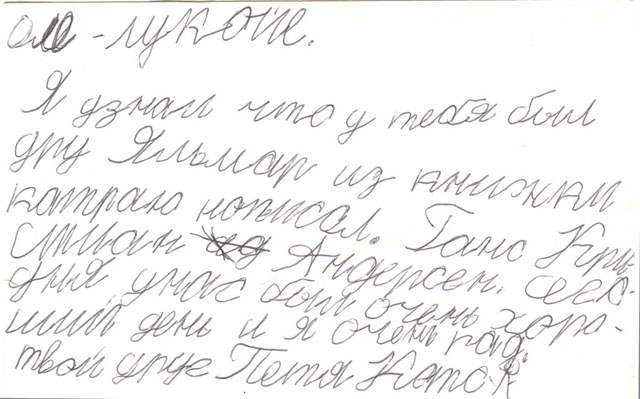 оле-лукойе.
Я узнал что у тебя был
дру Яльмар из книжки
катраю нописал. Ганс Кри
стиан Андерсен. Сего-
дня унас был очень хоро-
ший день и я очень рад.
твой друг Петя